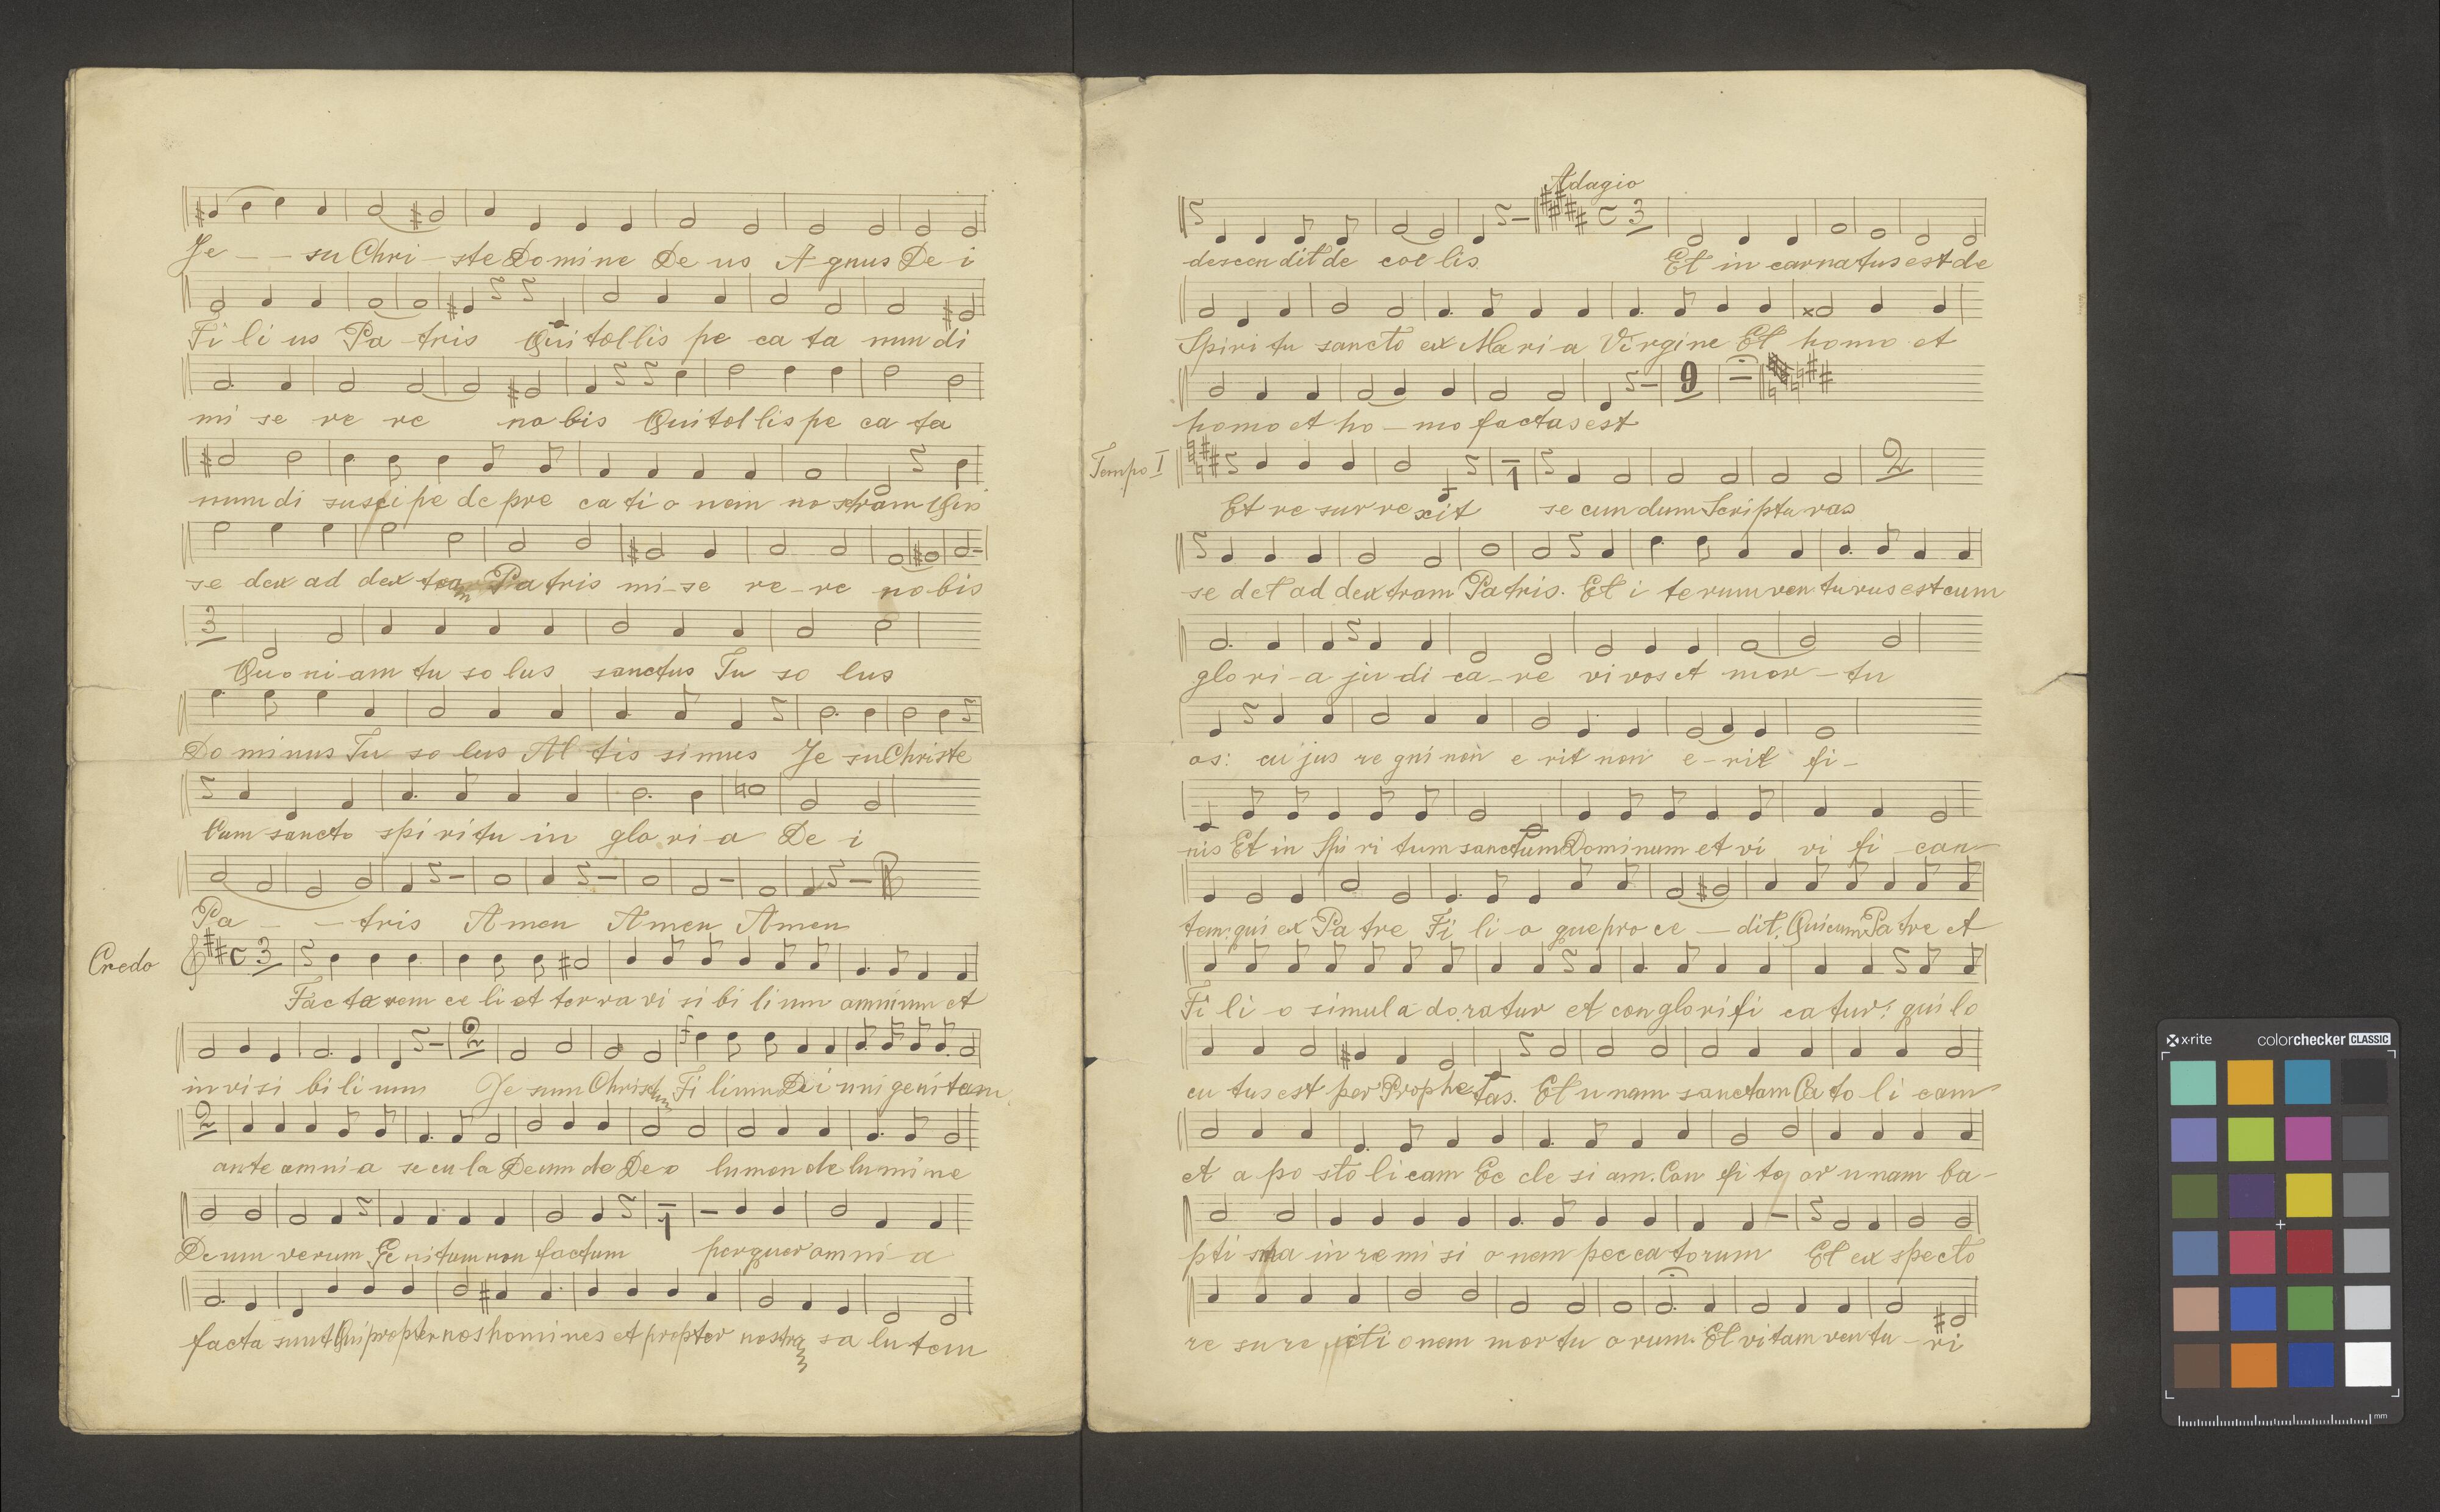 Je - - su Chri - ste Domine De us A - gnus De i
Fi li us Pa - tris Qui tollis pe ca ta mundi
mi se re re no bis Qui tol lis pe ca ta
mundi suscipe de pre ca ti o nem nostram Qui
se dex ad dextram Pa tris mi - se re - re no bis
3
Quo ni - am tu so lus sanctus Tu so lus
Do minus Tu so lus Al tis simus Je su Christe
Cum sancto spi ri tu in glo ri a De i
Pa - - tris Amen Amen Amen
Credo
C 3
Facto rem ce li et ter ra vi si bi li um omnium et
2
in vi si bi li um Je sum Christum Fi lium Dei unigenitam
2
ante omnia se cu la Deum de De o lumen de lumine
1
De um verum Ge ni tum non factum per quem omni - a
facta sunt Qui propter nos homines et propter nostra sa lu tem
Adagio
C 3
descen dit de coe lis Et in carnatus est de
Spiri tu sancto ex Mari a Virgine Et homo et
9
homo et ho - mo factus est
Tempo I
1 2
Et re sur re xit se cundum Scriptu ras
se det ad dextram Patris. Et i terum ven turus est cum
glo ri - a ju - di - ca - re vi vos et mor - tu
os: cu jus re gni non e rit non e - rit fi -
nis Et in Spi ri tum sanctum Dominum et vi vi fi can
tem: qui ex Pa tre Fi li - o que pro ce - dit. Qui cum Pa tre et
Fi li - o simul a do ratur et con glorifi ca tur: qui lo
cu tus est per Prophe tas. Et unam sanctam Ca to li cam
et a po sto li cam Ec cle si am. Con fi te or unam ba -
pti sma in re mi si o nem pec ca torum Et ex specto
re su re cti o nem mor tu o rum. Et vi tam ven tu - ri
x-rite colorchecker CLASSIC
mm